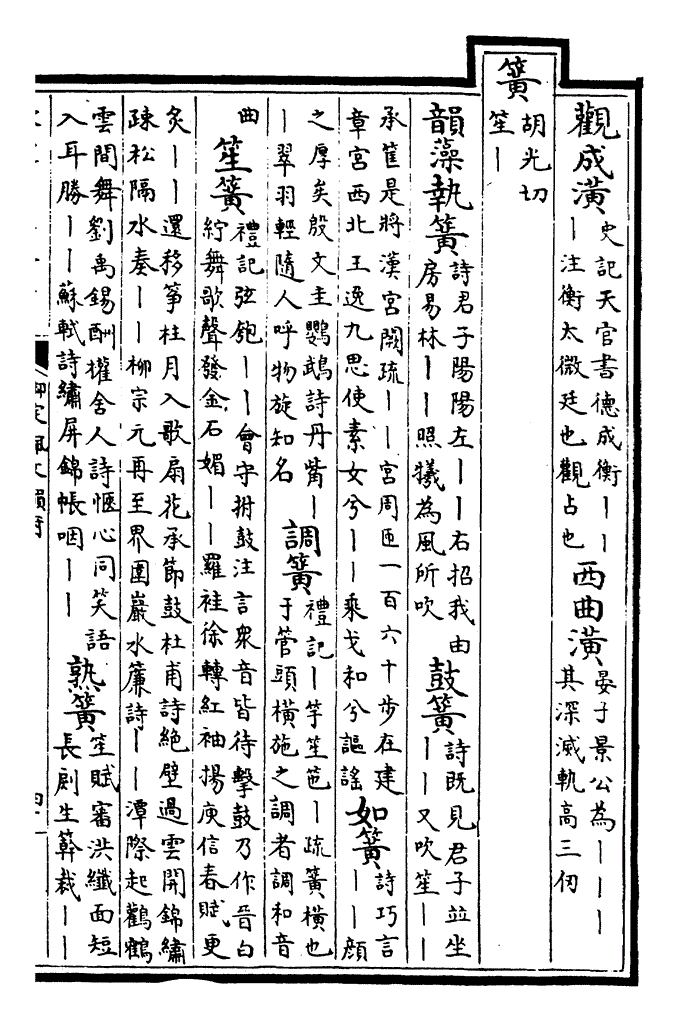 觀成潢 史記天官書德成衡丨丨
丨注衡太微廷也觀占也
西曲潢 晏子景公為丨丨丨
其深滅軌高三仞
簧 胡光切
笙丨
韻藻執簧 詩君子陽陽左丨丨右招我由
房易林丨丨照犧為風所吹
鼓簧 詩既見君子並坐
丨丨又吹笙丨丨
承筐是將漢宮闕疏丨丨宮周匝一百六十步在建
章宮西北王逸九思使素女兮丨丨乘戈和兮謳謠
如簧 詩巧言
丨丨顏
之厚矣殷文圭鸚鵡詩丹觜丨
丨翠羽輕隨人呼物旋知名
調簧 禮記丨竽笙笆丨疏簧橫也
于管頭橫施之調者調和音
曲
笙簧 禮記弦匏丨丨會守拊鼓注言衆音皆待擊鼓乃作晉白
紵舞歌聲發金石媚丨丨羅袿徐轉紅袖揚庾信春賦更
炙丨丨還移箏柱月入歌扇花承節鼓杜甫詩絶壁過雲開錦繡
疎松隔水奏丨丨柳宗元再至界圍巖水簾詩丨丨潭際起鸛鶴
雲間舞劉禹錫酬權舍人詩愜心同笑語
入耳勝丨丨蘇軾詩繡屏錦帳咽丨丨
熟簧 笙賦審洪纖面短
長劌生簳裁丨丨